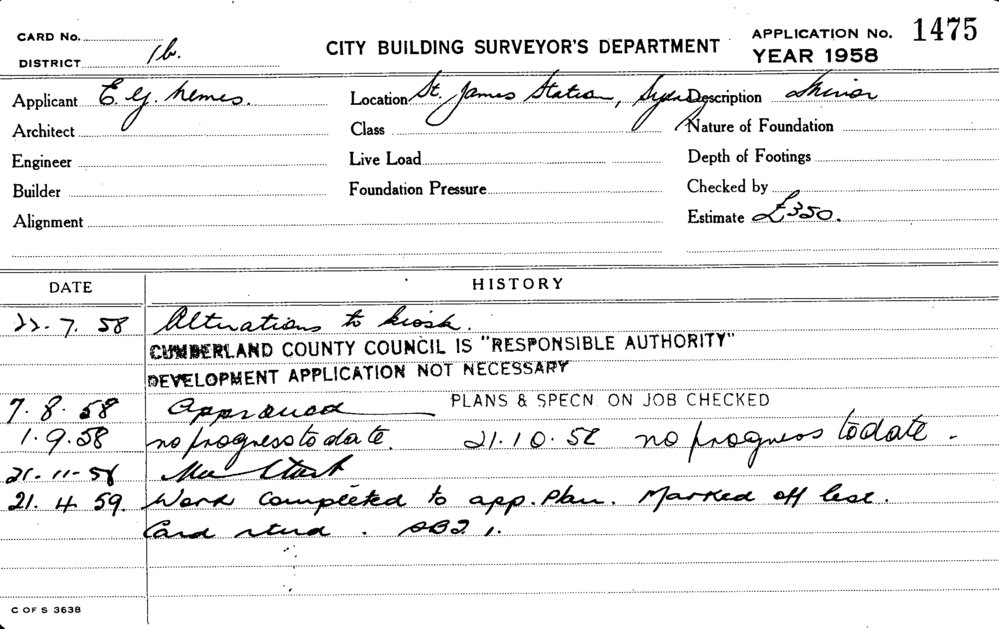 CARD No. CITY BUILDING SURVEYOR'S DEPARTMENT APPLICATION No. 1475
DISTRICT 1b. YEAR 1958
Applicant E. G. Nemes. Location St. James Station, Sydney Description Minor
Architect Class Nature of Foundation
Engineer Live Load Depth of Footings
Builder Foundation Pressure Checked by
Alignment Estimate £350.
DATE HISTORY
22.7.58 Alterations to kiosk.
CUMBERLAND COUNTY COUNCIL IS "RESPONSIBLE AUTHORITY"
DEVELOPMENT APPLICATION NOT NECESSARY
7.8.58 Approved PLANS & SPECN. ON JOB CHECKED
1.9.58 no progress to date. 21.10.58 no progress to date.
21.11.58
21.4.59. Work completed to app. Plan. Marked off
Card
C OF S 3638